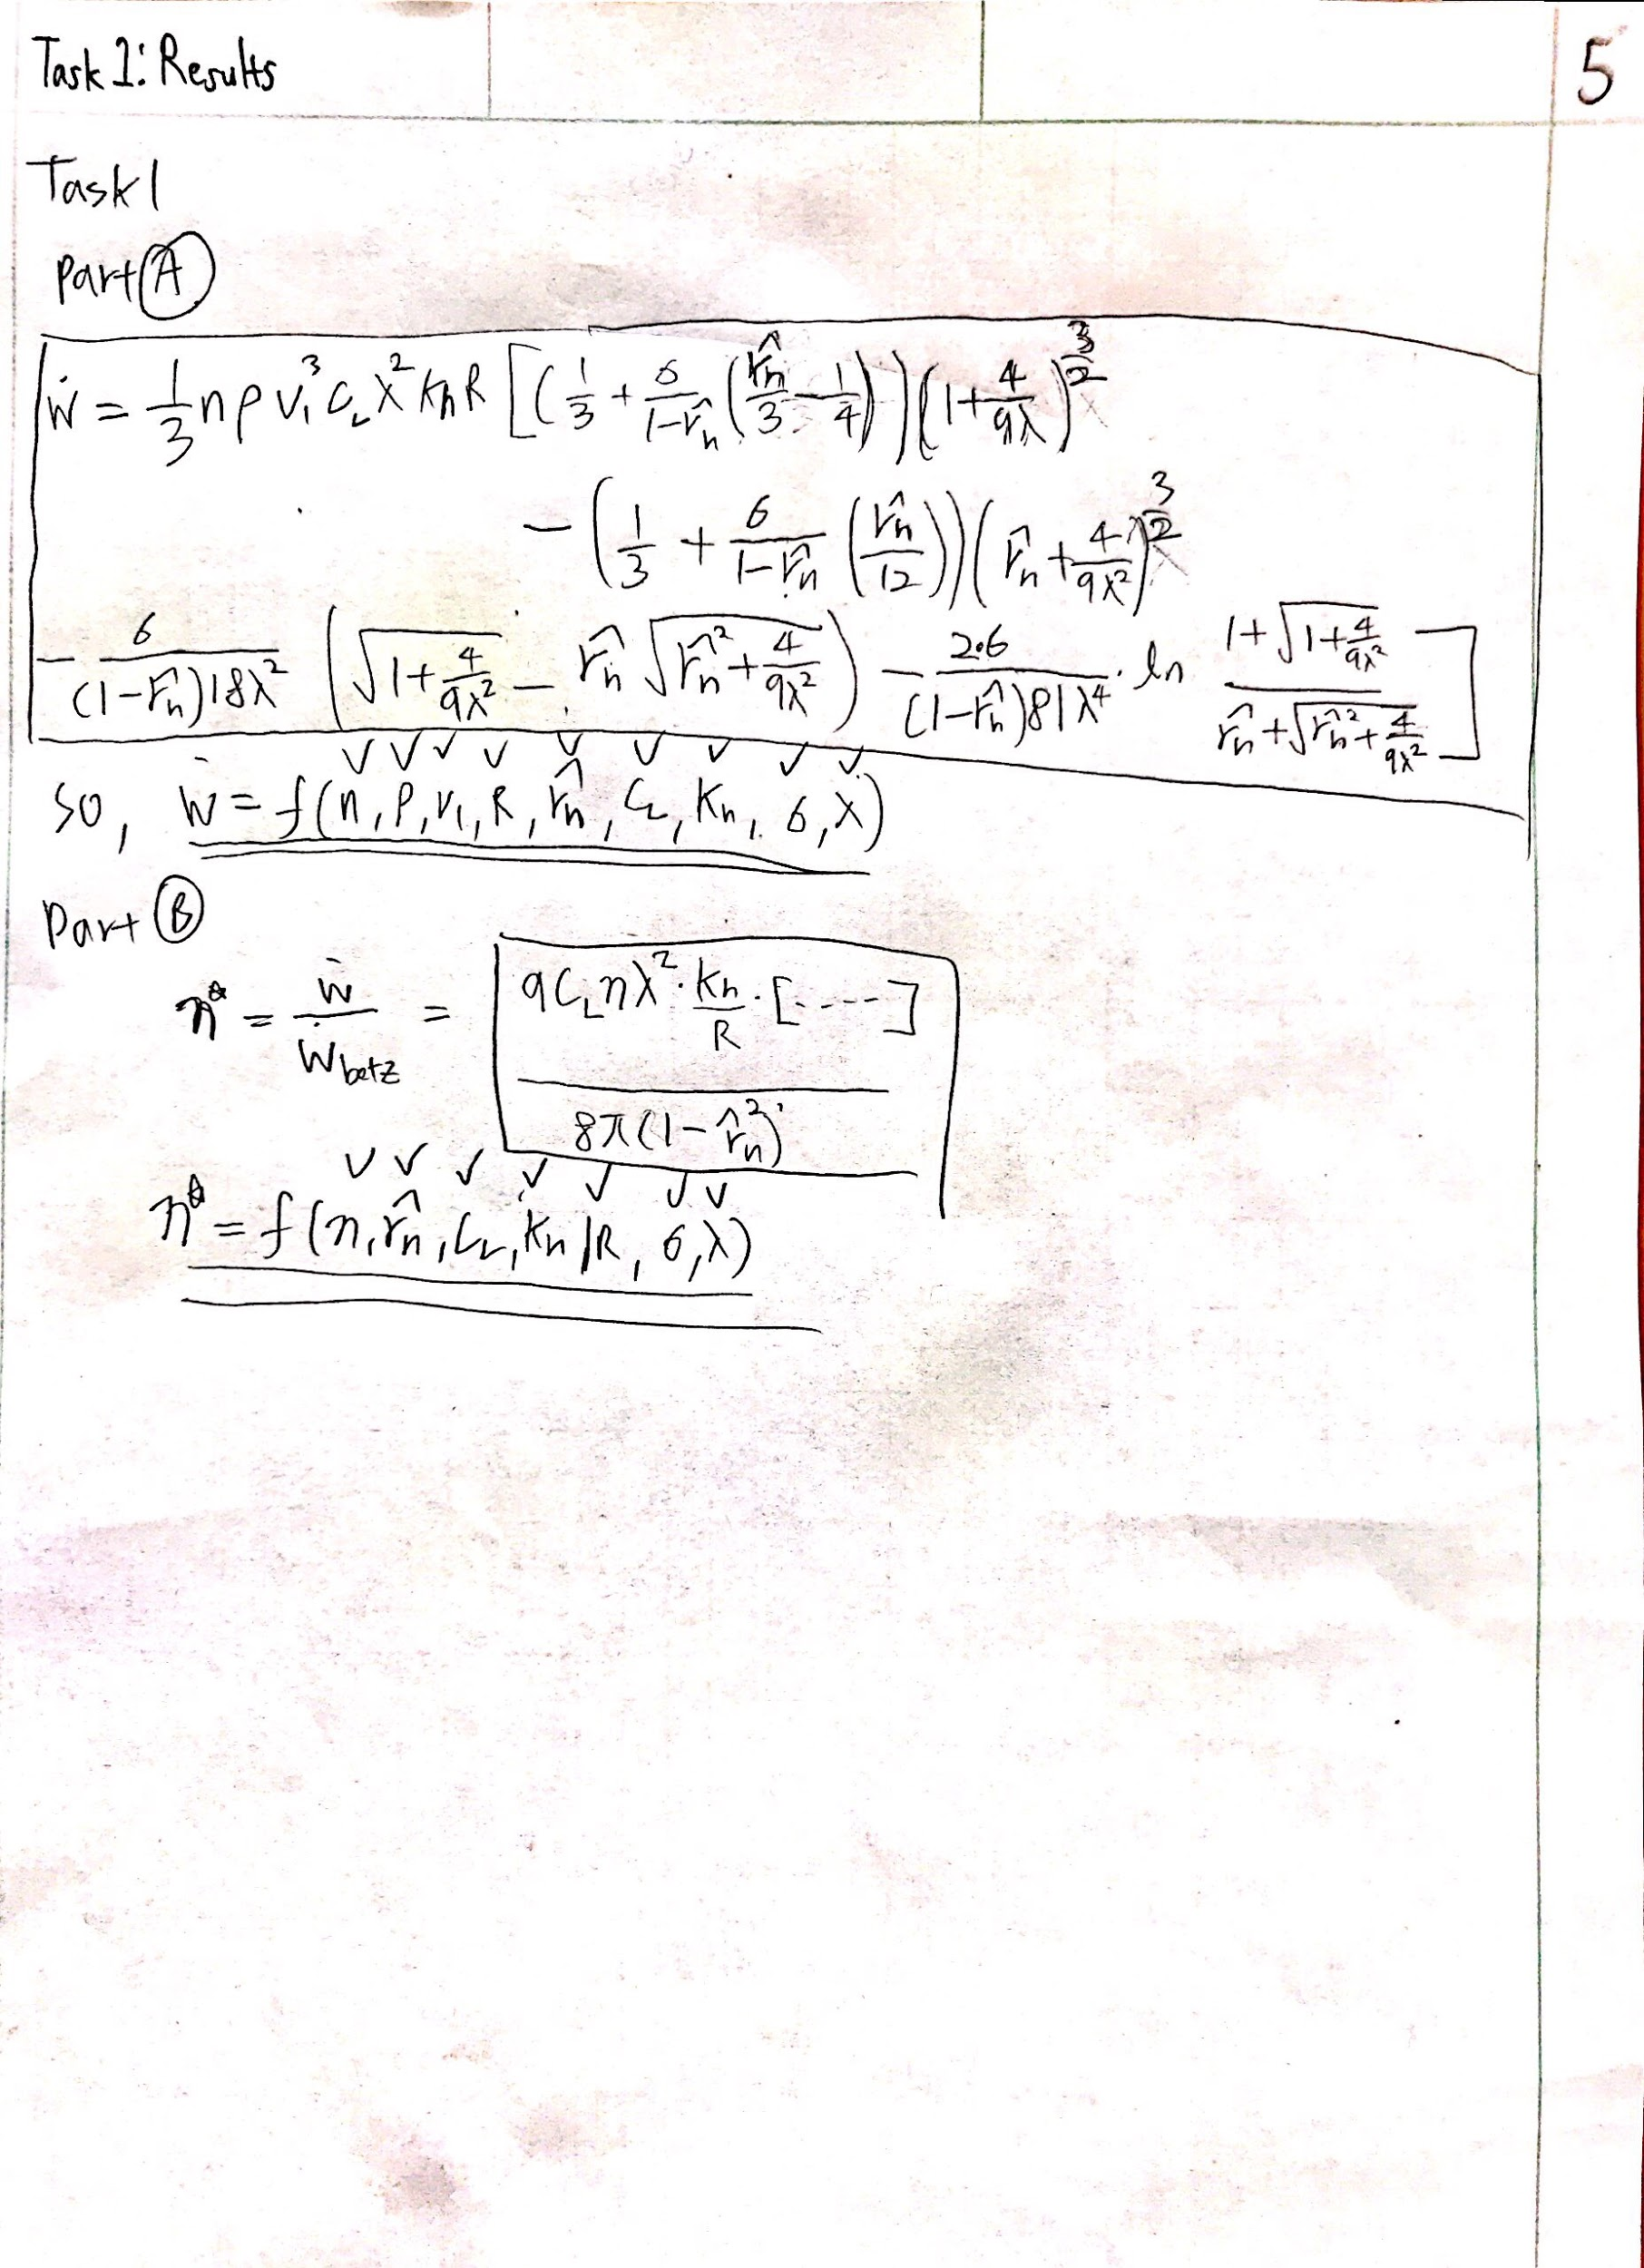 Task 1: Results
5
Task 1
Part Ⓐ
Ẇ = 1/3 n ρ v₁³ c_L λ² k_n R [(1/3 + σ/(1-r̂_n) (r̂_n/3 - 1/4))(1 + 4/9λ)^(3/2)
- (1/3 + σ/(1-r̂_n) (r̂_n/12))(r̂_n + 4/9λ²)^(3/2)
- σ/((1-r̂_n)18λ²) (√(1 + 4/9λ²) - r̂_n √(r̂_n² + 4/9λ²)) - 2·σ/((1-r̂_n)81λ⁴) · ln (1 + √(1 + 4/9λ²))/(r̂_n + √(r̂_n² + 4/9λ²))]
✓ ✓ ✓ ✓ ✓ ✓ ✓ ✓ ✓
so, Ẇ = f(n, ρ, v₁, R, r̂_n, c_L, k_n, σ, λ)
Part Ⓑ
η* = Ẇ/Ẇ_betz = (9 c_L n λ² · k_n/R · [----])/(8π(1-r̂_n²))
✓ ✓ ✓ ✓ ✓ ✓ ✓
η* = f(n, r̂_n, c_L, k_n/R, σ, λ)